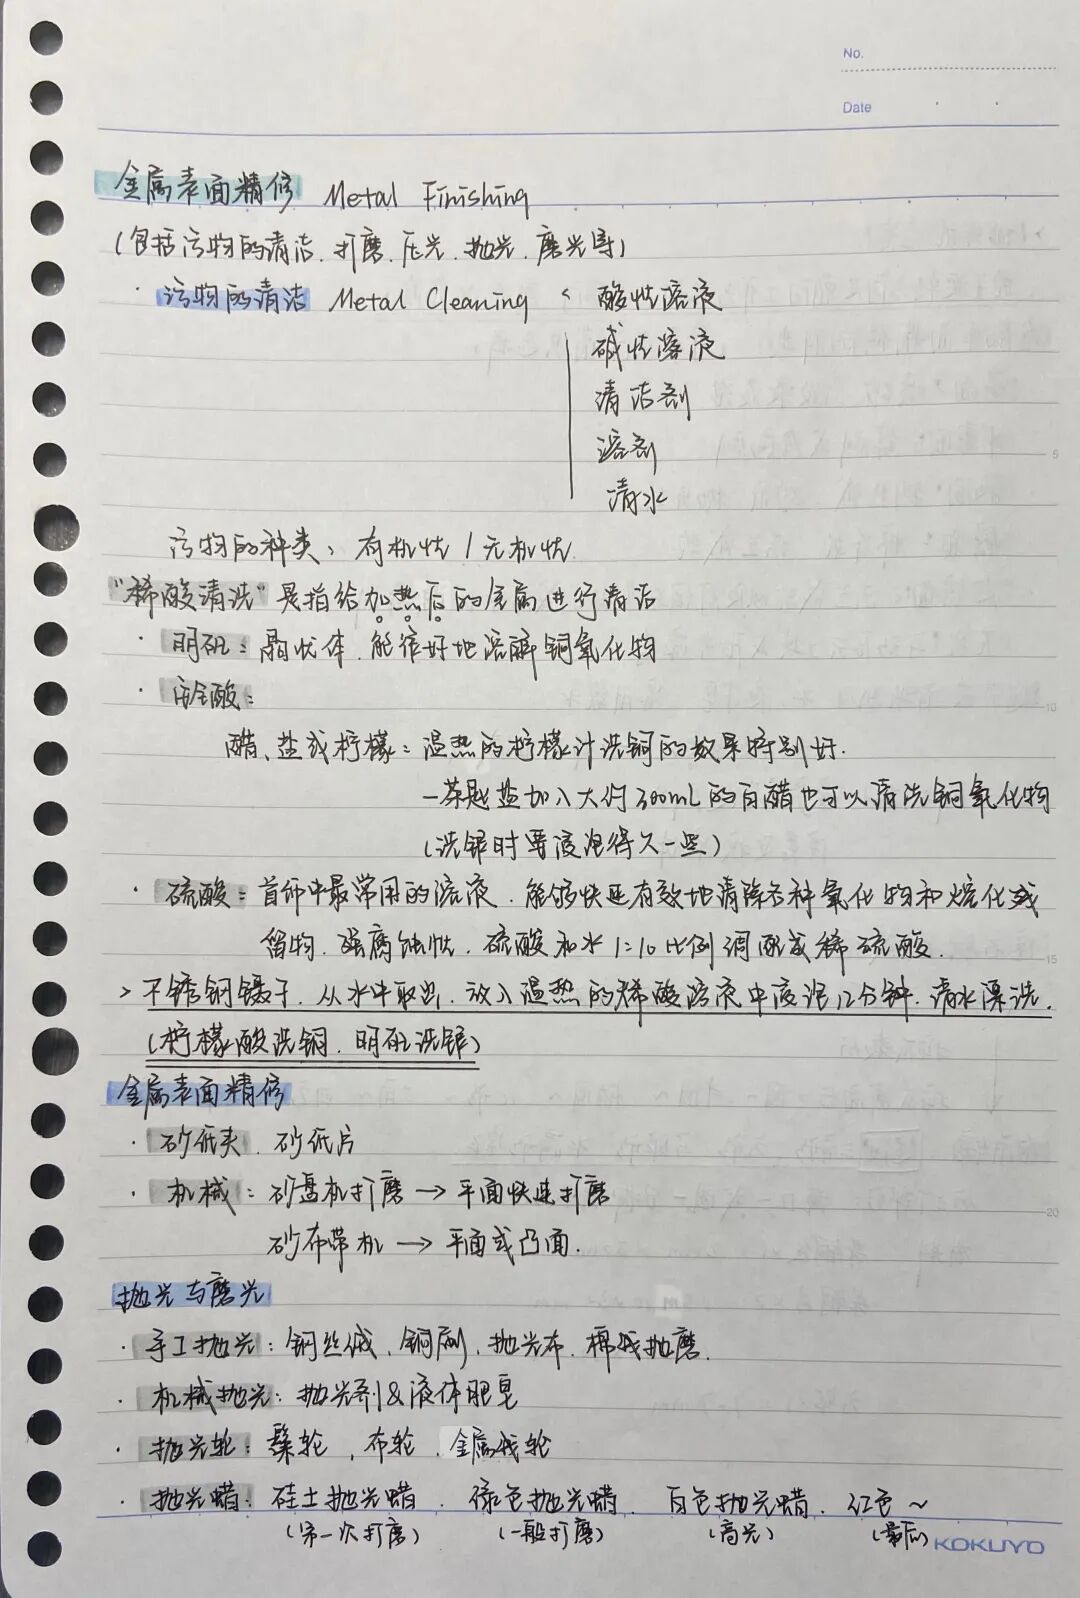 No.
Date
金属表面精修 Metal Finishing
(包括污物的清洁、打磨、压光、抛光、磨光等)
· 污物的清洁 Metal Cleaning < 酸性溶液
碱性溶液
清洁剂
溶剂
清水
污物的种类：有机性/无机性
"稀酸清洗"是指给加热后的金属进行清洁
· 明矾：晶状体，能很好地溶解铜氧化物
· 安全酸：
醋、盐或柠檬：温热的柠檬汁洗铜的效果特别好.
一茶匙盐加入大约300mL的白醋也可以清洗铜氧化物
(洗银时要浸泡得久一些)
· 硫酸：首饰中最常用的溶液，能够快速有效地清除各种氧化物和熔化残
留物，强腐蚀性，硫酸和水1:10比例调配成稀硫酸.
> 不锈钢镊子，从水中取出，放入温热的稀酸溶液中浸泡12分钟，清水漂洗.
(柠檬酸洗铜，明矾洗银)
金属表面精修
· 砂纸夹、砂纸片
· 机械：砂盘机打磨→平面快速打磨
砂布带机→平面或凸面.
抛光与磨光
· 手工抛光：钢丝绒、铜刷、抛光布、棉线抛磨.
· 机械抛光：抛光剂&液体肥皂
· 抛光轮：鬃轮、布轮、金属线轮
· 抛光蜡：硅土抛光蜡、绿色抛光蜡、白色抛光蜡、红色~
(第一次打磨) (一般打磨) (高光) (最后)
5
10
15
20
KOKUYO